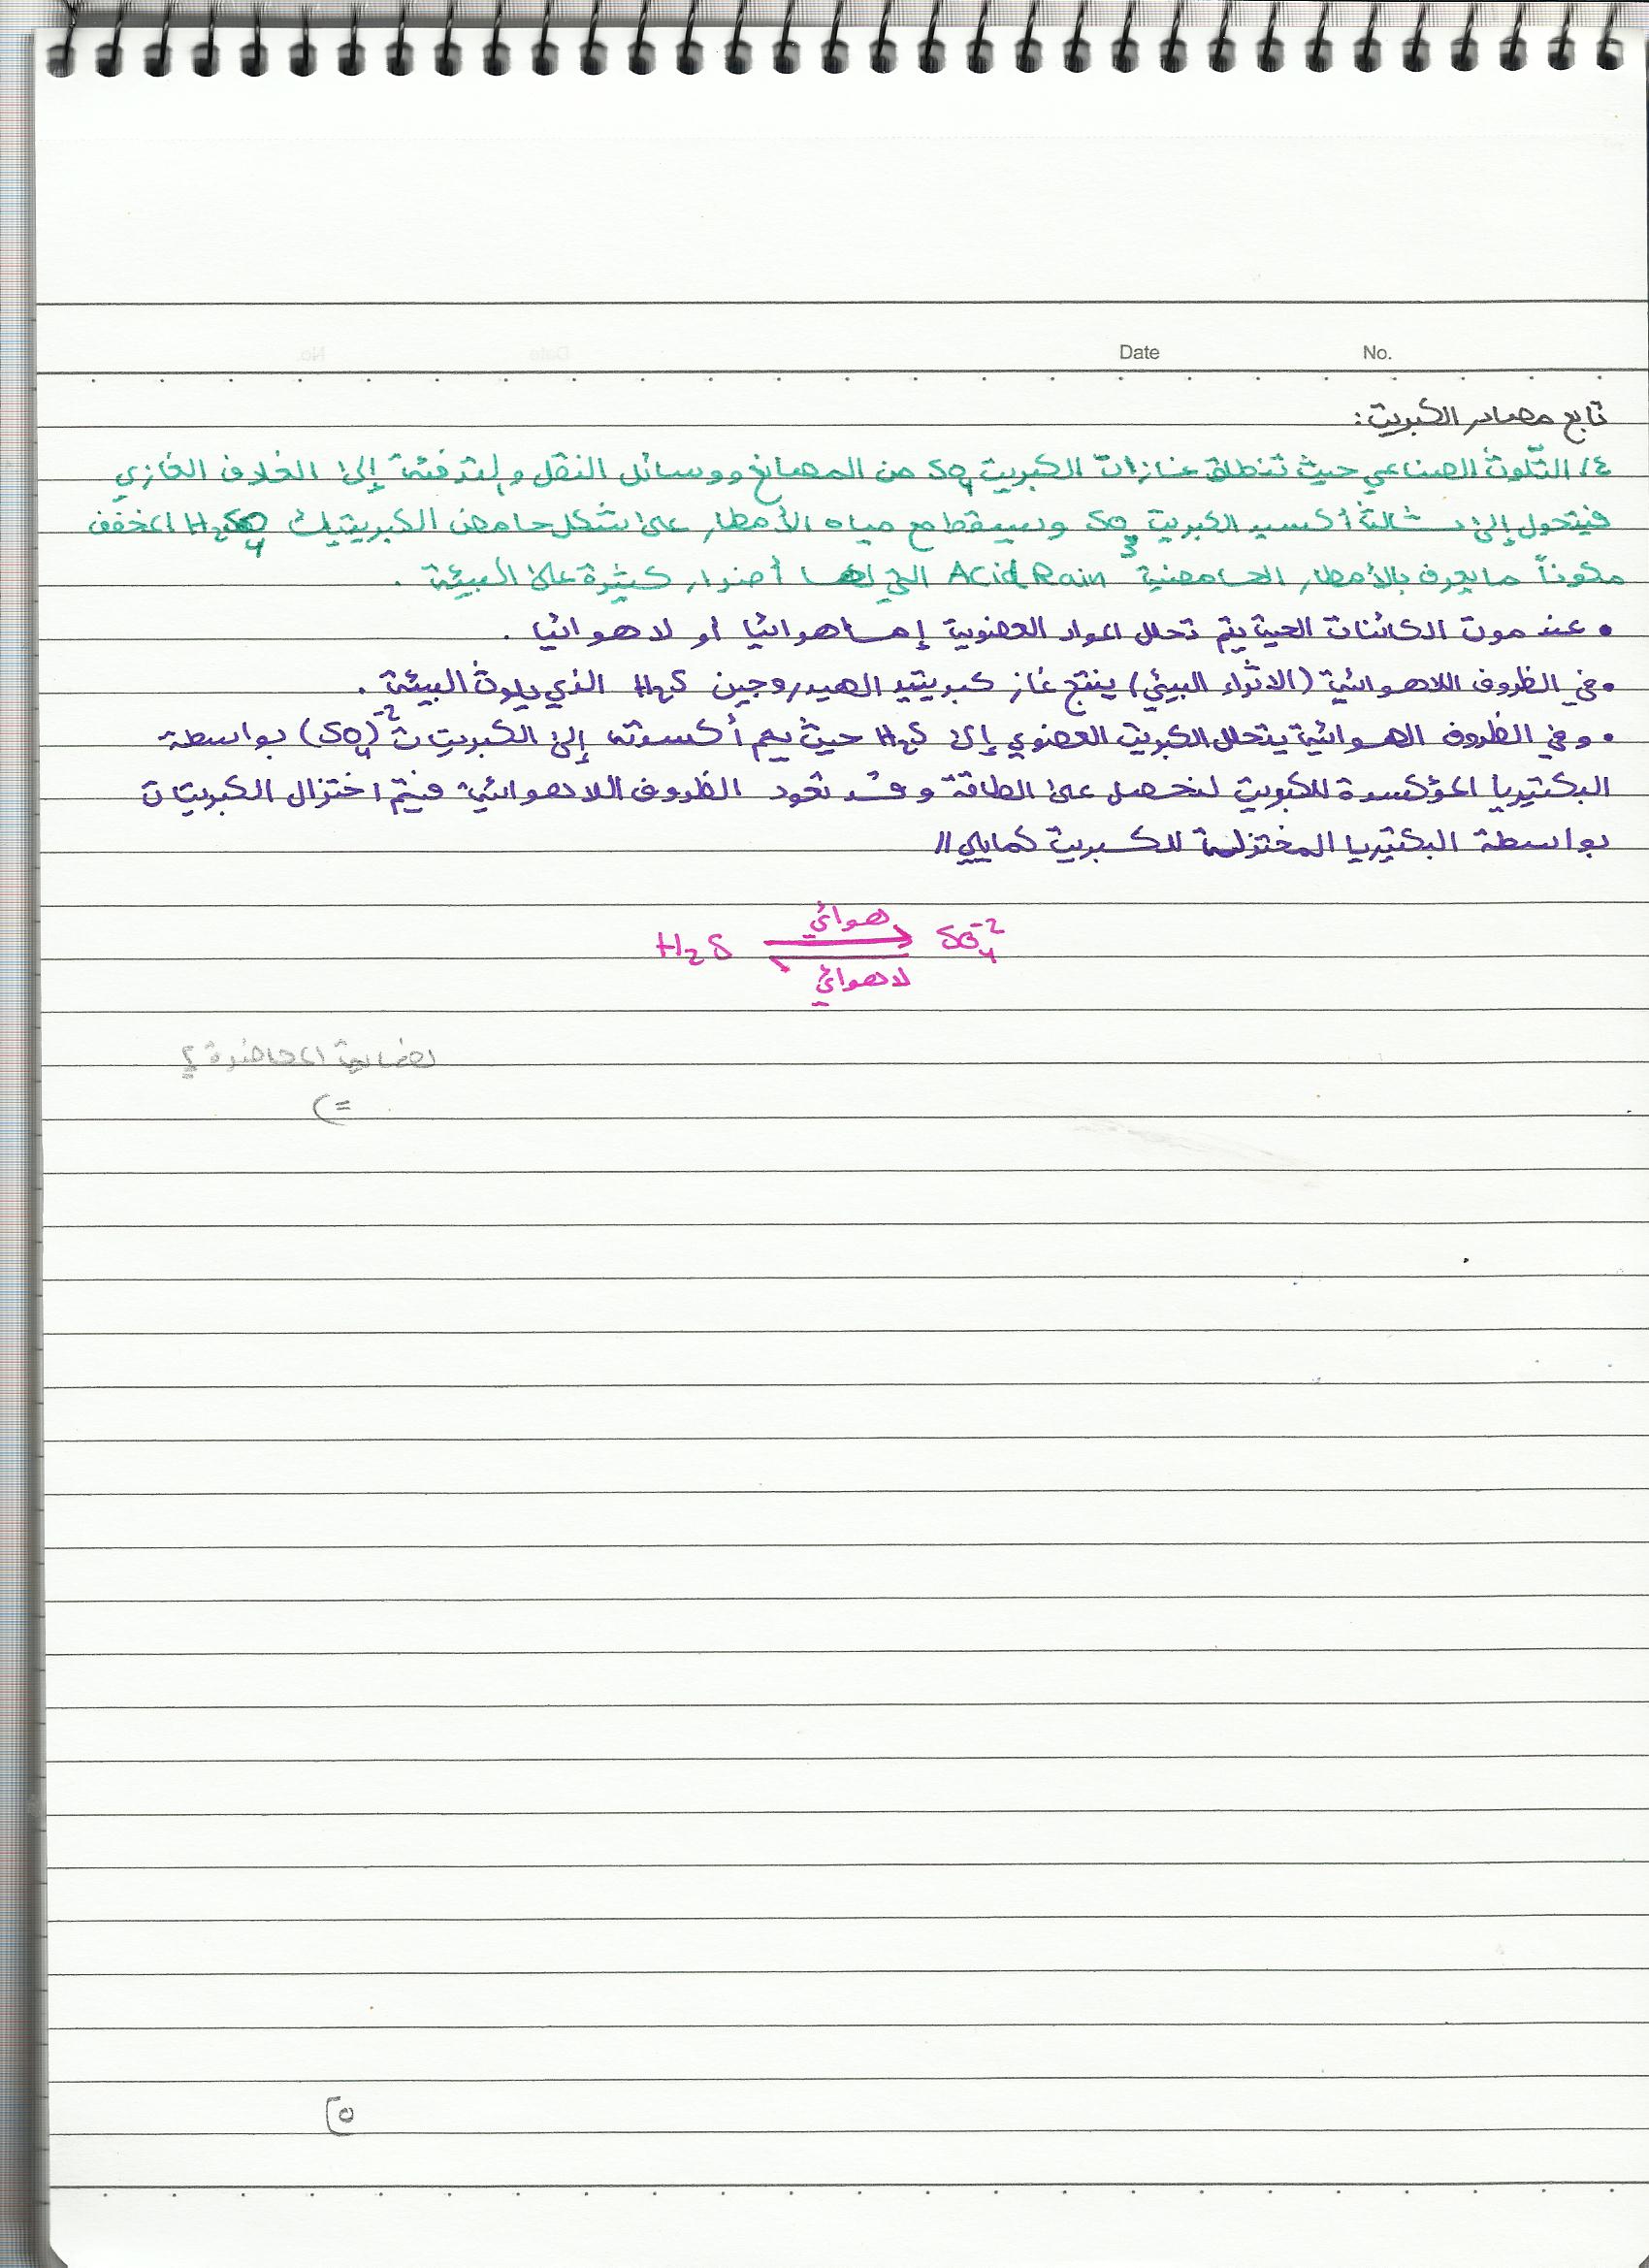 Date No.
تابع مصادر الكبريت:
٤/ التلوث الصناعي حيث تنطلق غازات الكبريت SO₄ من المصانع ووسائل النقل والتدفئة إلى الغلاف الغازي
فيتحول إلى ثالث أكسيد الكبريت SO₃ ويسقط مع مياه الأمطار على شكل حامض الكبريتيك H₂SO₄ المخفف
مكوناً ما يعرف بالأمطار الحامضية Acid Rain التي لها أضرار كثيرة على البيئة .
• عند موت الكائنات الحية يتم تحلل المواد العضوية إما هوائيا أو لا هوائيا .
• في الظروف اللاهوائية (الاثراء البيئي) ينتج غاز كبريتيد الهيدروجين H₂S الذي يلوث البيئة .
• وفي الظروف الهوائية يتحلل الكبريت العضوي إلى H₂S حيث يتم أكسدته إلى الكبريتات (SO₄)⁻² بواسطة
البكتيريا المؤكسدة للكبريت لتحصل على الطاقة وقد تعود الظروف اللاهوائية فيتم اختزال الكبريتات
بواسطة البكتيريا المختزلة للكبريت كمايلي //
هوائي
H₂S ⇌ SO₄⁻²
لاهوائي
نهاية المحاضرة ؟
(=
[٥